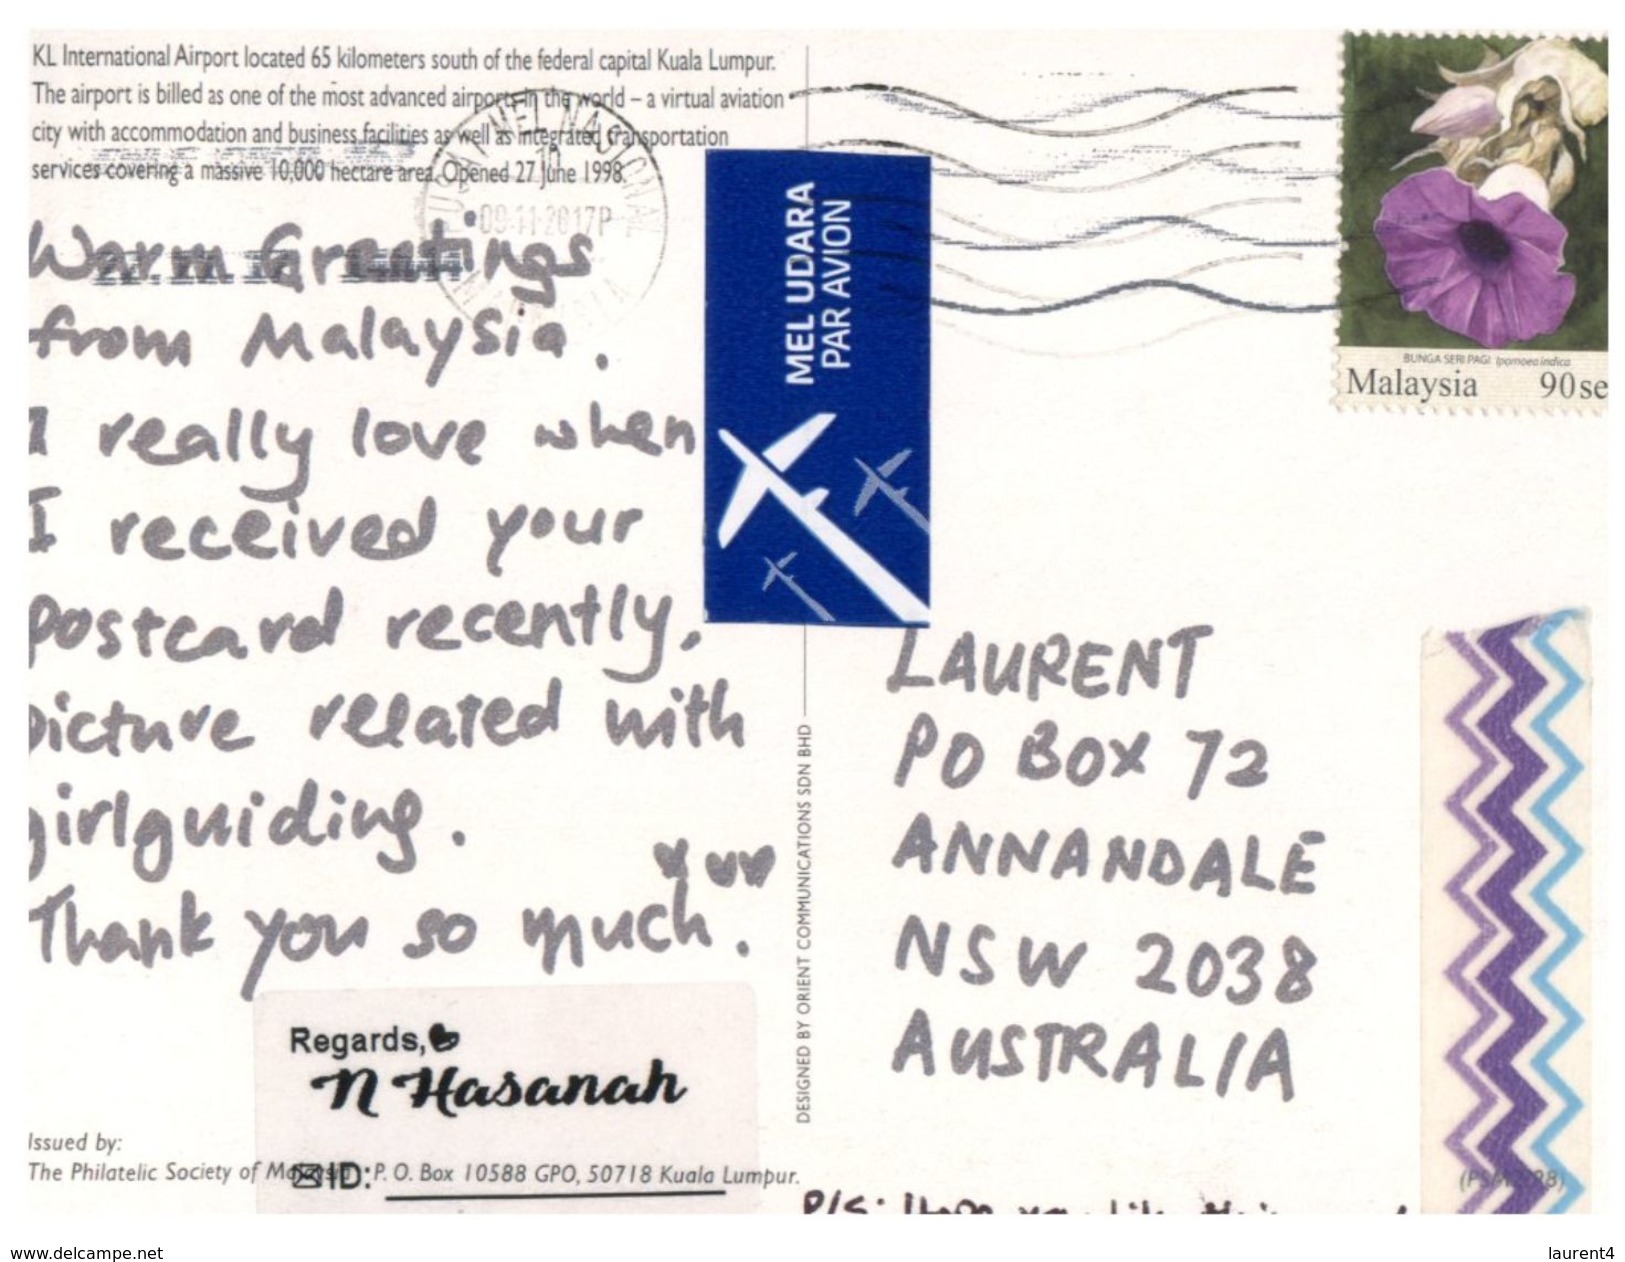 KL International Airport located 65 kilometers south of the federal capital Kuala Lumpur.
The airport is billed as one of the most advanced airports in the world – a virtual aviation
city with accommodation and business facilities as well as integrated transportation
services covering a massive 10,000 hectare area. Opened 27 June 1998.
09-11-2017P
Warm Greetings
from Malaysia.
I really love when
I received your
postcard recently,
picture related with
girlguiding.
Thank you so much.
Regards,
N Hasanah
ID:
Issued by:
The Philatelic Society of Malaysia P. O. Box 10588 GPO, 50718 Kuala Lumpur.
MEL UDARA
PAR AVION
DESIGNED BY ORIENT COMMUNICATIONS SDN BHD
BUNGA SERI PAGI Ipomoea indica
Malaysia 90se
LAURENT
PO BOX 72
ANNANDALE
NSW 2038
AUSTRALIA
P/S: Hope you like this
www.delcampe.net
laurent4